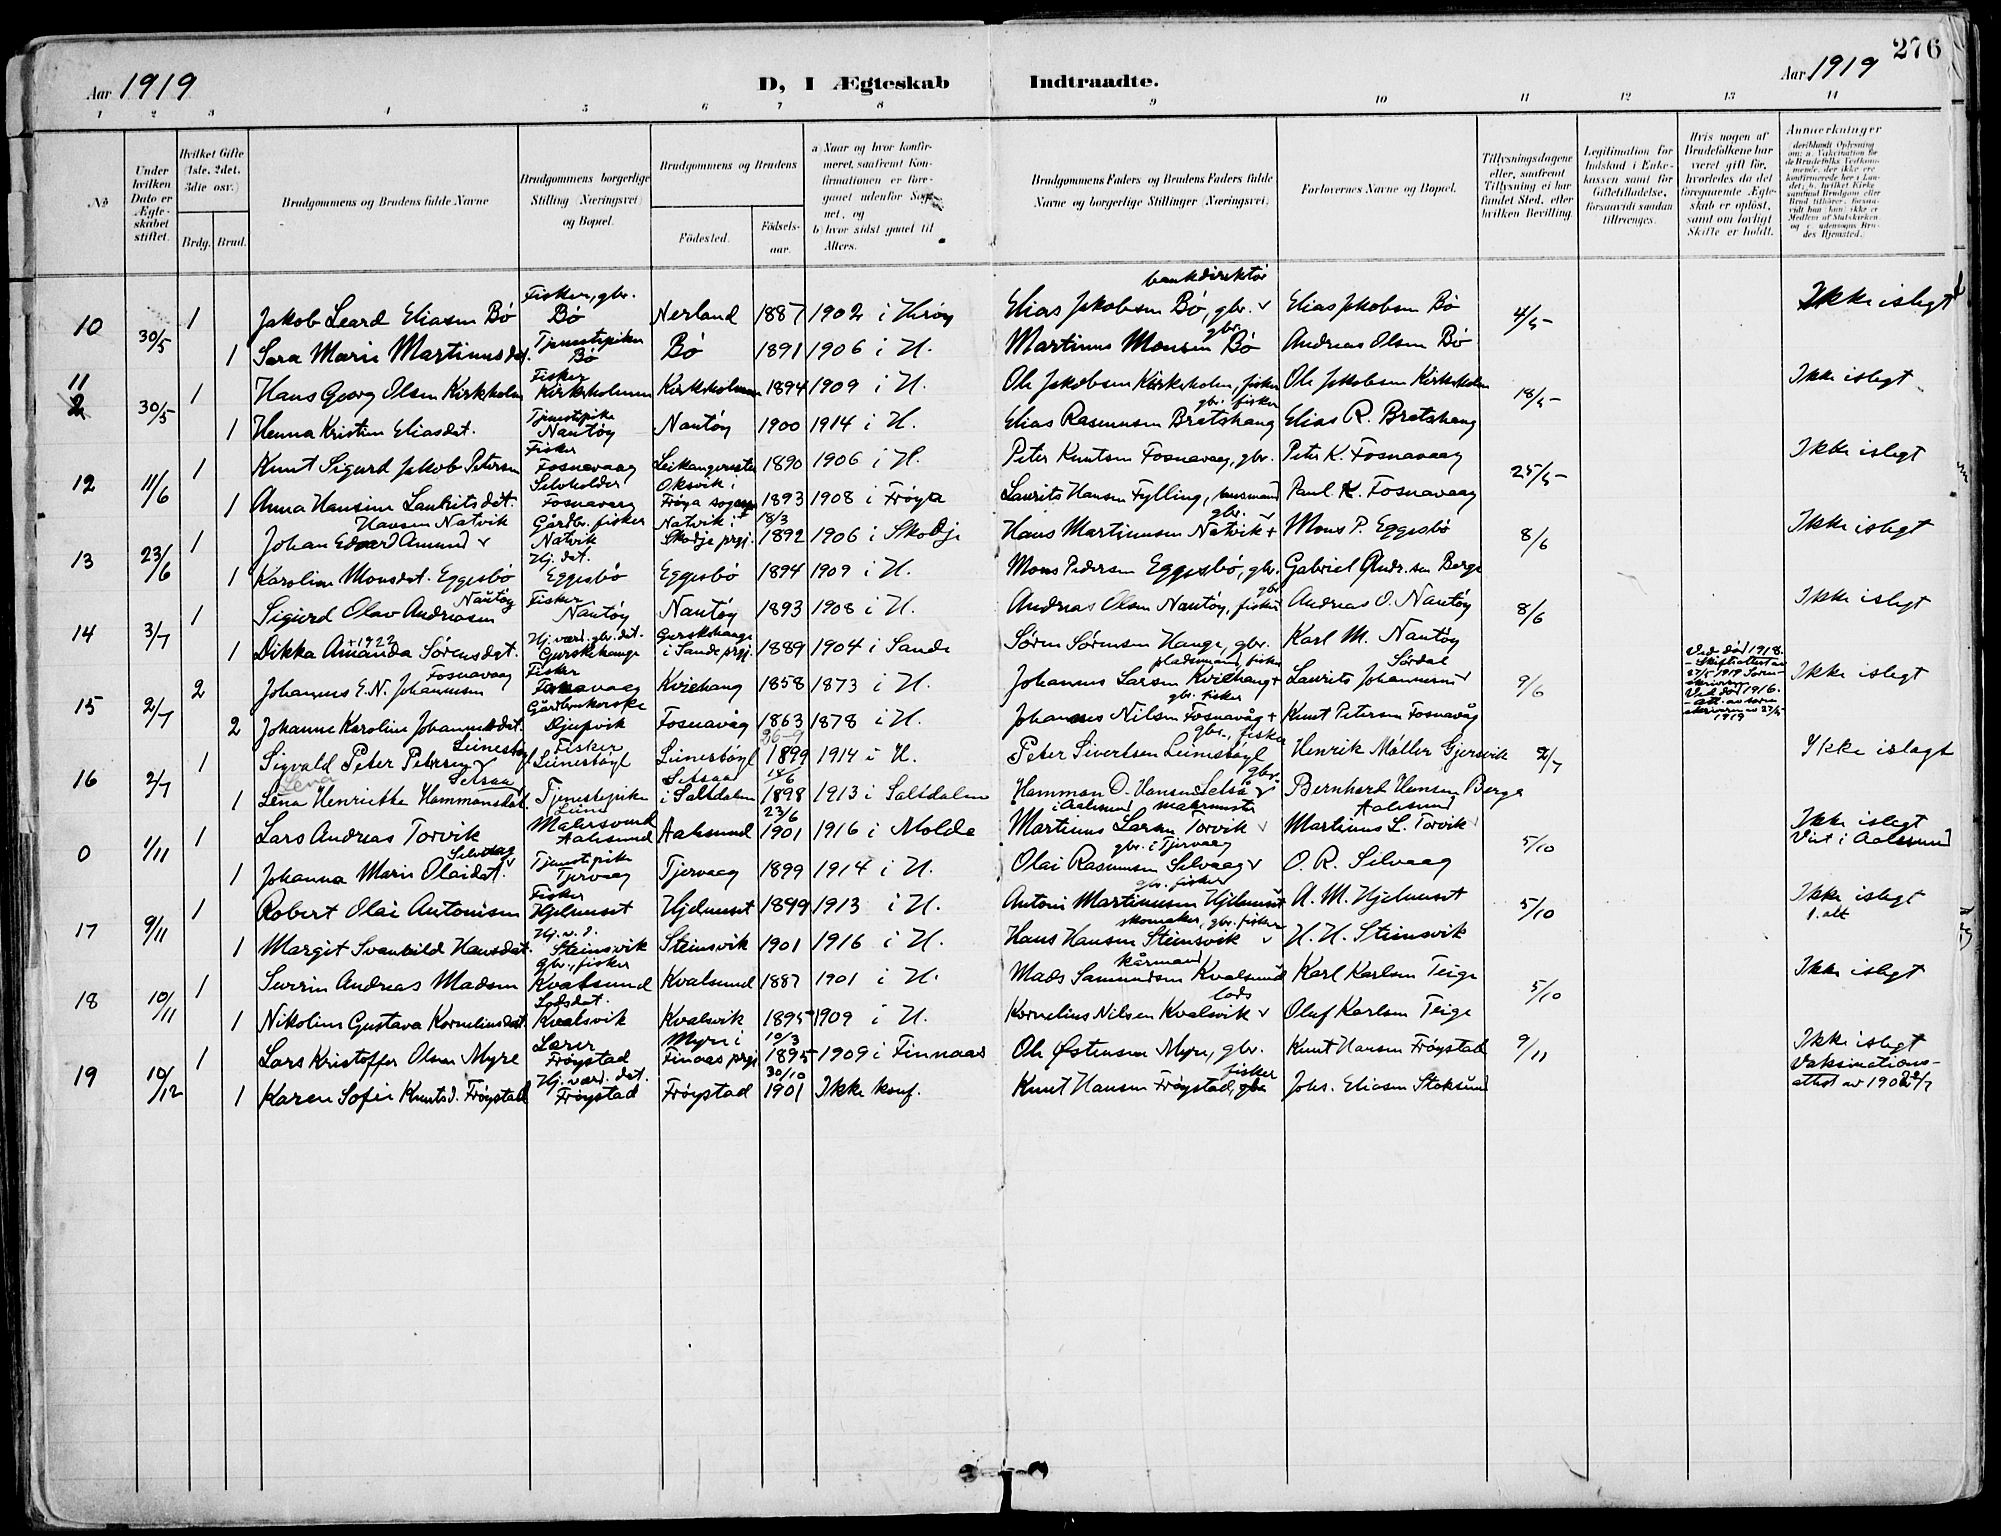 276
Aar 1919 D, I Ægteskab Indtraadte. Aar 1919
1 2 3 4 5 6 7 8 9 10 11 12 13 14
No
Under hvilken Dato er Ægteskabet stiftet.
Hvilket Gifte (1ste, 2det, 3die osv.)
Brdg. Brud.
Brudgommens og Brudens fulde Navne
Brudgommens borgerlige Stilling (Næringsvei) og Bopæl.
Brudgommens og Brudens
Fødested. Fødselsaar.
a) Naar og hvor konfirmeret, saafremt Konfirmationen er foregaaet udenfor Sognet, og
b) hvor sidst gaaet til Alters.
Brudgommens Faders og Brudens Faders fulde Navne og borgerlige Stillinger (Næringsvei)
Forlovernes Navne og Bopæl.
Tillysningsdagene eller, saafremt Tillysning ei har fundet Sted, efter hvilken Bevilling.
Legitimation for Indskud i Enkekassen samt for Giftetilladelse, forsaavidt saadan tiltrænges.
Hvis nogen af Brudefolkene har været gift før, hvorledes da det foregaaende Ægteskab er opløst, samt om lovligt Skifte er holdt.
Anmerkninger
10 30/5 1 Jakob Leard Eliassen Bø Fisker, gbr. Bø Nerland 1887 1902 i Herøy Elias Jakobsen Bø, gbr. bankdirektør Elias Jakobsen Bø 4/5 Ikke islegt
1 Sara Marie Martinusdat. Tjenestepike Bø Bø 1891 1906 i H. Martinus Monsen Bø gbr. Andreas Olsen Bø
11 30/5 1 Hans Georg Olsen Kirkholm Fisker Kirkholmen Kirkholmen 1894 1909 i H. Ole Jakobsen Kirkeholm, fisker Ole Jakobsen Kirkholm 18/5 Ikke islegt
1 Henna Kristine Eliasdat. Tjenestepike Nautøy Nautøy 1900 1914 i H. Elias Rasmussen Bratshaug gbr. fisker Elias R. Bratshaug
12 11/6 1 Knut Sigurd Jakob Petersen Fisker Fosnavaag 1890 1906 i H. Peter Knutsen Fosnavaag, gbr. Peter K. Fosnavaag 25/5 Ikke islegt
1 Anna Hansine Lauritsdat. Fosnavaag Oksvik i Frøya sogn 1893 1908 i Frøya Laurits Hansen Fylling, husmand Paul K. Fosnavaag
13 23/6 1 Johan Edvard Amund Hansen Natvik Gårdbr. fisker Natvik Natvik i Skodje prgj. 18/3 1892 1906 i Skodje Hans Martinusen Natvik + gbr. Mons P. Eggesbø 8/6 Ikke islegt
1 Karoline Monsdat. Eggesbø Hj. dat. Eggesbø Eggesbø 1894 1909 i H. Mons Pedersen Eggesbø, gbr. Gabriel Andr.sen Berge
14 3/7 1 Sigurd Olav Andreasen Nautøy Fisker Nautøy Nautøy 1893 1908 i H. Andreas Olsen Nautøy, fisker gbr. Andreas O. Nautøy 8/6 Ikke islegt
1 Dikka Amanda Sørensdat. +1922 Hj. vær. gbr. dat. Gurskehauge Gurskehauge i Sande prgj. 1889 1904 i Sande Søren Sørensen Hauge, gbr. Karl M. Nautøy
15 2/7 2 Johannes E. N. Johannesen Fosnavaag Fisker Fosnavaag Kviehaug 1858 1873 i H. Johannes Larsen Kviehaug + pladsmand, fisker Laurits Johannesen Sørdal 9/6 Ved død 1918. - Skifteattest av 27/5 1919 Ikke islegt
2 Johanne Karoline Johannesdat. Gårdbrukerske Djupvik Fosnavåg 1863 1878 i H. Johannes Nilsen Fosnavåg + gbr. fisker Knut Petersen Fosnavåg Ved død 1916. - att. av 27/5 1919
16 2/7 1 Sigvald Peter Petersen Leinebøgl Fisker Leinebøgl Leinebøgl 26-9 1899 1914 i H. Peter Sivertsen Leinebøgl gbr., fisker Henrik Møller Gjersvik 2/7 Ikke islagt
1 Lena Henriette Hammonsdat. Setsaa Tjenestepike Leine Setsaa i Saltdalen 14/6 1898 1913 i Saltdalen Hammon O. Hansen Setså gbr. Bernhard Hansen Berge
0 1/11 1 Lars Andreas Torvik Malersvend Aalesund Aalesund 23/6 1901 1916 i Molde Martinus Larsen Torvik i Aalesund malermester Martinus L. Torvik Aalesund 5/10 Ikke islegt Viet i Aalesund
1 Johanna Marie Olaidat. Selvaag Tjenestepike Tjervaag Tjervaag 1899 1914 i H. Olai Rasmussen Selvaag gbr. i Tjervaag O. R. Selvaag
17 9/11 1 Robert Olai Antonisen Fisker Hjelmeset Hjelmeset 1899 1913 i H. Antoni Martinussen Hjelmeset gbr. fisker A. M. Hjelmeset 5/10 Ikke islegt
1 Margit Svanhild Hansdat. Hj. v. d. Steinsvik Steinsvik 1901 1916 i H. Hans Hansen Steinsvik skomaker, gbr. fisker H. H. Steinsvik
18 10/11 1 Severin Andreas Madsen gbr., fisker Kvalsund Kvalsund 1887 1901 i H. Mads Samuelsen Kvalsund kårmand Karl Karlsen Teige 5/10 Ikke islegt
1 Nikoline Gustava Korneliusdat. Losdat. Kvalsvik Kvalsvik 1895 1909 i H. Kornelius Nilsen Kvalsvik lods Oluf Karlsen Teige
19 10/12 1 Lars Kristoffer Olsen Myre Lærer Frøystad Myre i Finnaas prgj 19/3 1895 1909 i Finnaas Ole Østensen Myre, gbr. Knut Hansen Frøystad 9/11 Ikke islegt Vaksinationsattest av 1902
1 Karen Sofie Knutsd. Frøystad Hj. vær. dat. Frøystad Frøystad 30/10 1901 Ikke konf. Knut Hansen Frøystad, gbr. fisker Johs. Eliassen Stoksund